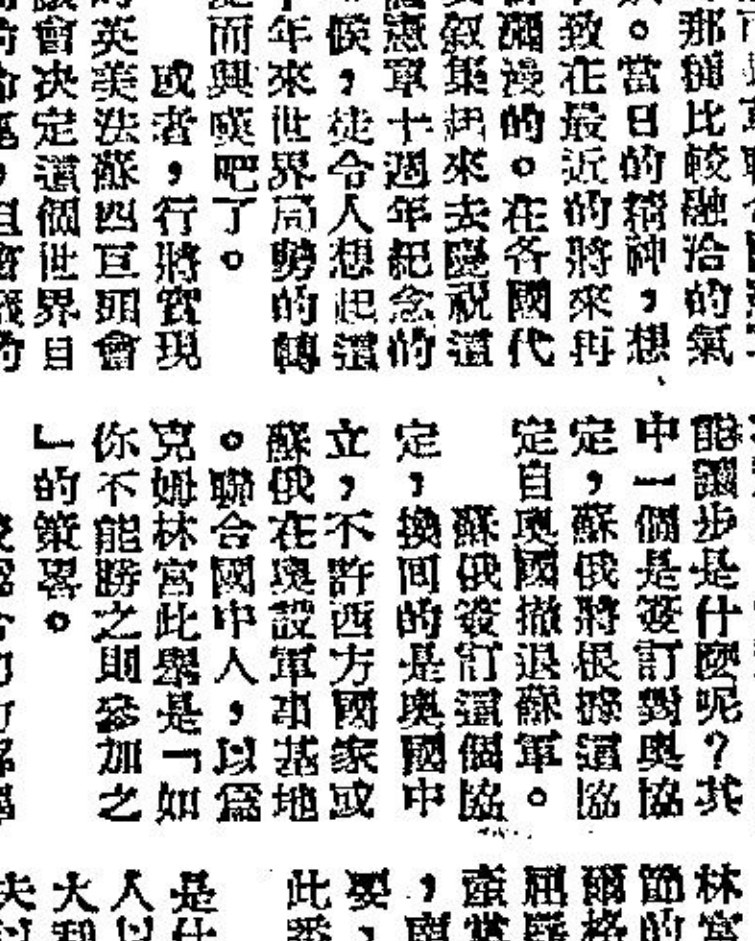 那種比較融洽的氣
。當日的精神,想
致在最近的將來再
瀰漫的。在各國代
叙集起來去慶祝這
憲章十週年紀念的
候,徒令人想起這
年來世界局勢的轉
而興嘆吧了。
或者,行將實現
英美法蘇四巨頭會
會決定這個世界目
能讓步是什麽呢?其
中一個是簽訂對奧協
定,蘇俄將根據這協
定自奧國撤退蘇軍。
蘇俄簽訂這個協
定,換囘的是奧國中
立,不許西方國家或
蘇俄在奧設軍事基地
。聯合國中人,以爲
克姆林宮此舉是「如
你不能勝之則參加之
」的策畧。
林宮
節的
爾格
屈
產黨
,南
要,
此
是什
人以
大和
夫以